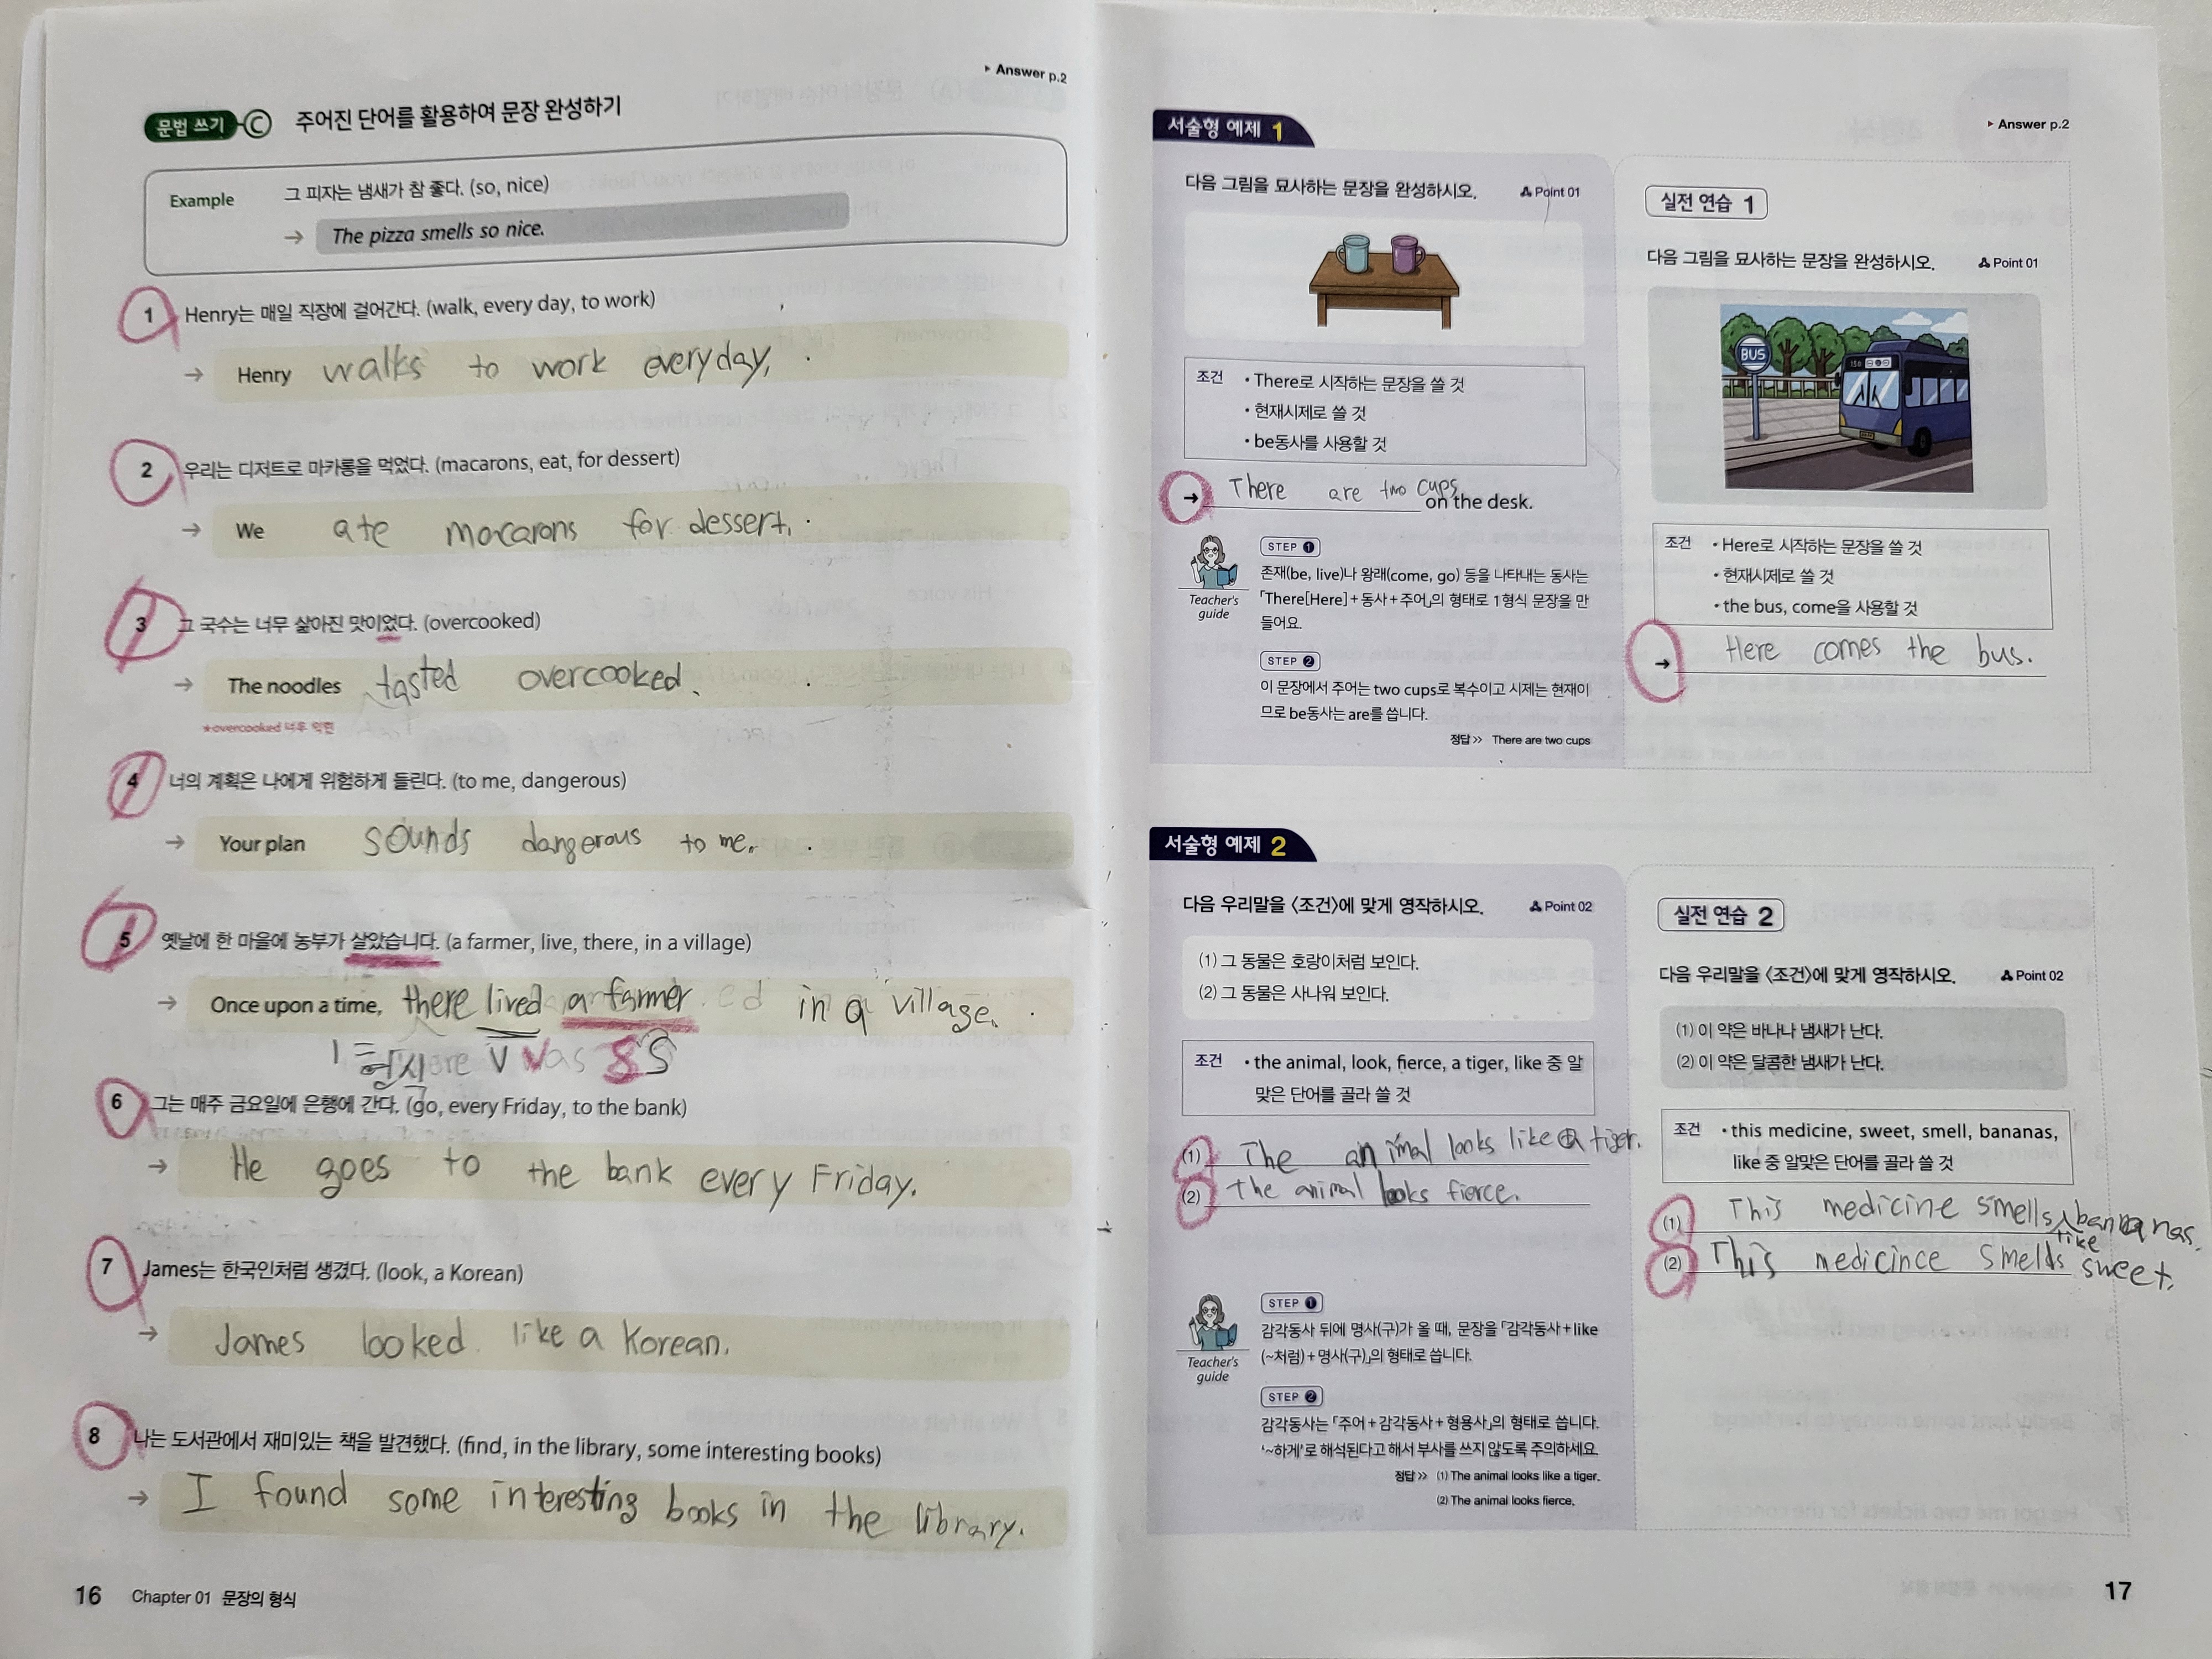 ▸ Answer p.2
문법 쓰기 C 주어진 단어를 활용하여 문장 완성하기
Example 그 피자는 냄새가 참 좋다. (so, nice)
→ The pizza smells so nice.
1 Henry는 매일 직장에 걸어간다. (walk, every day, to work)
→ Henry walks to work everyday. .
2 우리는 디저트로 마카롱을 먹었다. (macarons, eat, for dessert)
→ We ate macarons for dessert. .
3 그 국수는 너무 삶아진 맛이었다. (overcooked)
→ The noodles tasted overcooked. .
*overcooked 너무 익힌
4 너의 계획은 나에게 위험하게 들린다. (to me, dangerous)
→ Your plan sounds dangerous to me. .
5 옛날에 한 마을에 농부가 살았습니다. (a farmer, live, there, in a village)
→ Once upon a time, there lived a farmer in a village. .
1형식 V S
6 그는 매주 금요일에 은행에 간다. (go, every Friday, to the bank)
→ He goes to the bank every Friday.
7 James는 한국인처럼 생겼다. (look, a Korean)
→ James looked like a Korean.
8 나는 도서관에서 재미있는 책을 발견했다. (find, in the library, some interesting books)
→ I found some interesting books in the library.
16 Chapter 01 문장의 형식
서술형 예제 1
다음 그림을 묘사하는 문장을 완성하시오. Point 01
조건 • There로 시작하는 문장을 쓸 것
• 현재시제로 쓸 것
• be동사를 사용할 것
→ There are two cups on the desk.
Teacher's guide
STEP 1
존재(be, live)나 왕래(come, go) 등을 나타내는 동사는
「There[Here]+동사+주어」의 형태로 1형식 문장을 만
들어요.
STEP 2
이 문장에서 주어는 two cups로 복수이고 시제는 현재이
므로 be동사는 are를 씁니다.
정답 >> There are two cups
▸ Answer p.2
실전 연습 1
다음 그림을 묘사하는 문장을 완성하시오. Point 01
BUS
조건 • Here로 시작하는 문장을 쓸 것
• 현재시제로 쓸 것
• the bus, come을 사용할 것
→ Here comes the bus.
서술형 예제 2
다음 우리말을 〈조건〉에 맞게 영작하시오. Point 02
(1) 그 동물은 호랑이처럼 보인다.
(2) 그 동물은 사나워 보인다.
조건 • the animal, look, fierce, a tiger, like 중 알
맞은 단어를 골라 쓸 것
(1) The animal looks like a tiger.
(2) The animal looks fierce.
Teacher's guide
STEP 1
감각동사 뒤에 명사(구)가 올 때, 문장을 「감각동사+like
(~처럼)+명사(구)」의 형태로 씁니다.
STEP 2
감각동사는 「주어+감각동사+형용사」의 형태로 씁니다.
'~하게'로 해석된다고 해서 부사를 쓰지 않도록 주의하세요.
정답 >> (1) The animal looks like a tiger.
(2) The animal looks fierce.
실전 연습 2
다음 우리말을 〈조건〉에 맞게 영작하시오. Point 02
(1) 이 약은 바나나 냄새가 난다.
(2) 이 약은 달콤한 냄새가 난다.
조건 • this medicine, sweet, smell, bananas,
like 중 알맞은 단어를 골라 쓸 것
(1) This medicine smells like bananas.
(2) This medicince smells sweet.
17